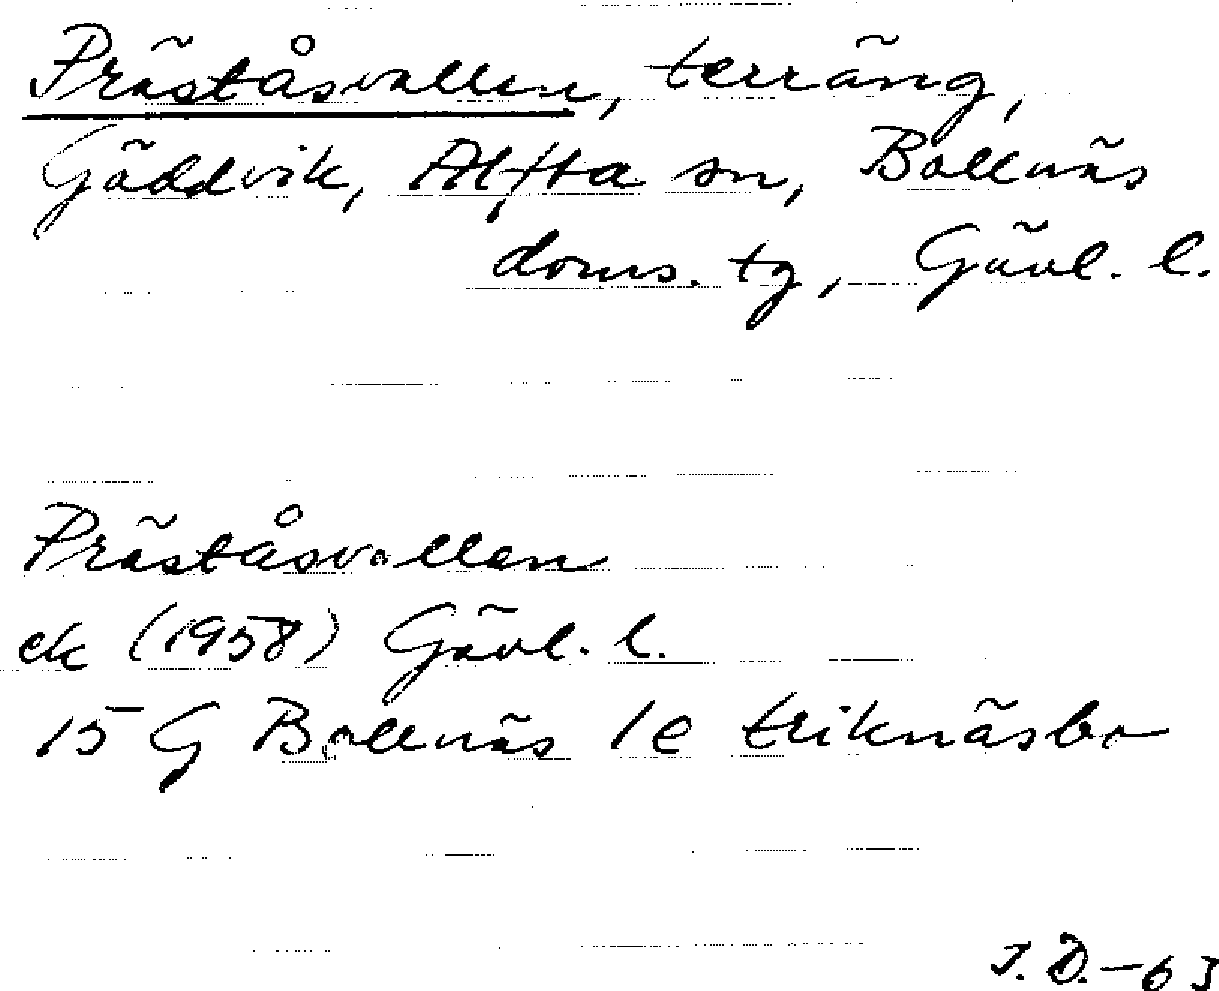 Präståsvallen, terräng,
Gäddvik, Alfta sn, Bollnäs
doms. tg, Gävl. l.
Präståsvallen
ek (1958) Gävl. l.
15 G Bollnäs 1e Eriknäsbo
J. D. -63